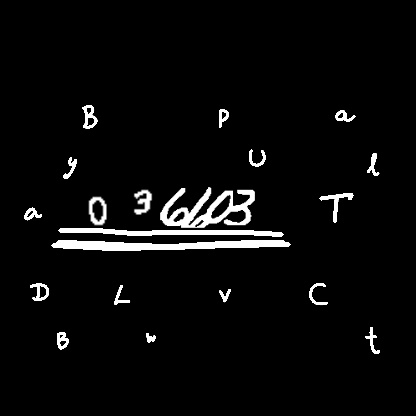 B P a
y U l
a 0 3 6603 T
D L v C
B w t